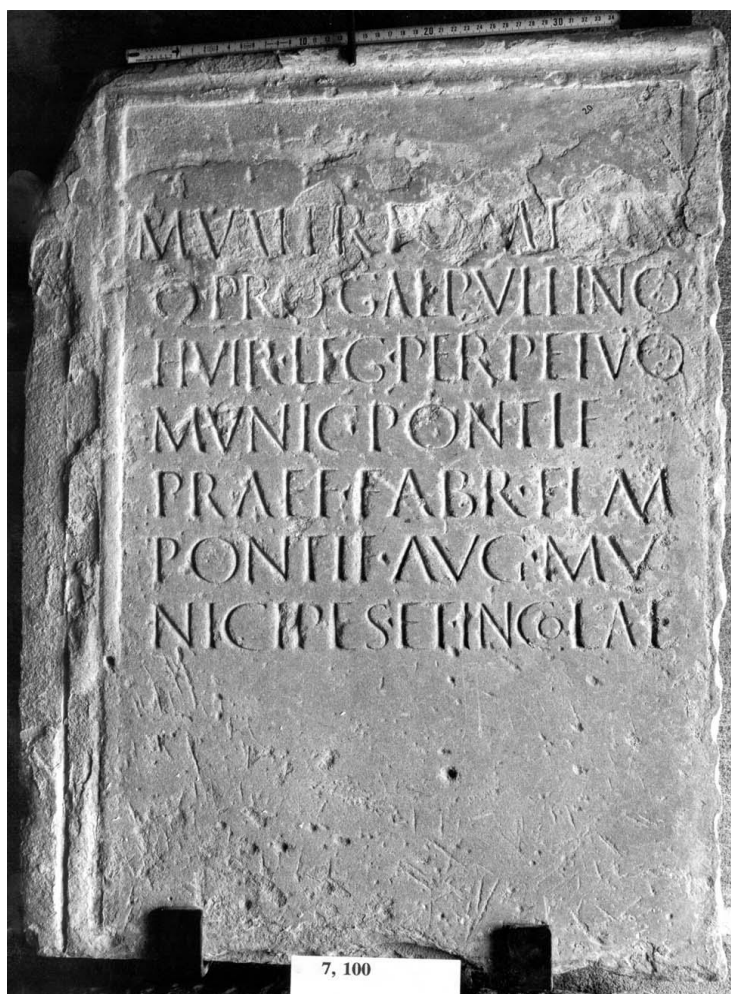 10 20 30
M VALERIO M F
Q PRO GAL PVLLINO
IIVIR·LEG·PERPETVO
MVNIC PONTIF
PRAEF·FABR·FLAM
PONTIF·AVG·MV
NICIPES·ET·INCOLAE
7, 100